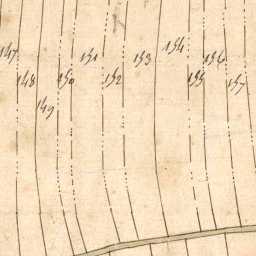 147
148
149
150
151
152
153
154
155
156
157